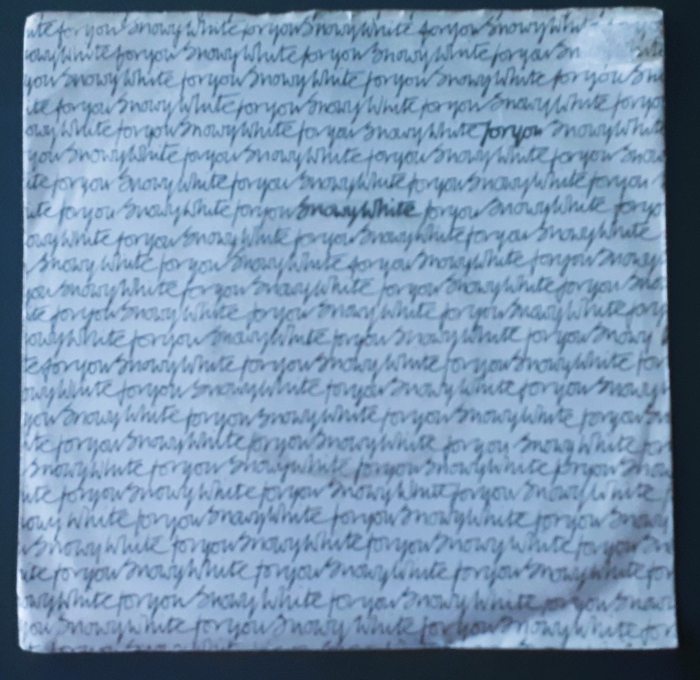 ite for you Snowy White for you Snowy White for you Snowy Whit
owy White for you Snowy White for you Snowy White for you Sn
you Snowy White for you Snowy White for you Snowy White for you Snow
ite for you Snowy White for you Snowy White for you Snowy White for
owy White for you Snowy White for you Snowy White for you Snowy White
you Snowy White for you Snowy White for you Snowy White for you Snow
ite for you Snowy White for you Snowy White for you Snowy White for you S
ite for you Snowy White for you Snowy White for you Snowy White for yo
owy White for you Snowy White for you Snowy White for you Snowy White
Snowy White for you Snowy White for you Snowy White for you Snowy
you Snowy White for you Snowy White for you Snowy White for you Sno
te for you Snowy White for you Snowy White for you Snowy White for y
owy White for you Snowy White for you Snowy White for you Snowy W
te for you Snowy White for you Snowy White for you Snowy White for
owy White for you Snowy White for you Snowy White for you Snowy
you Snowy White for you Snowy White for you Snowy White for you
ite for you Snowy White for you Snowy White for you Snowy White
Snowy White for you Snowy White for you Snowy White for you Snowy
ite for you Snowy White for you Snowy White for you Snowy White
owy White for you Snowy White for you Snowy White for you Snowy
Snowy White for you Snowy White for you Snowy White for you Snow
ite for you Snowy White for you Snowy White for you Snowy White for
owy White for you Snowy White for you Snowy White for you Snowy
you Snowy White for you Snowy White for you Snowy White for